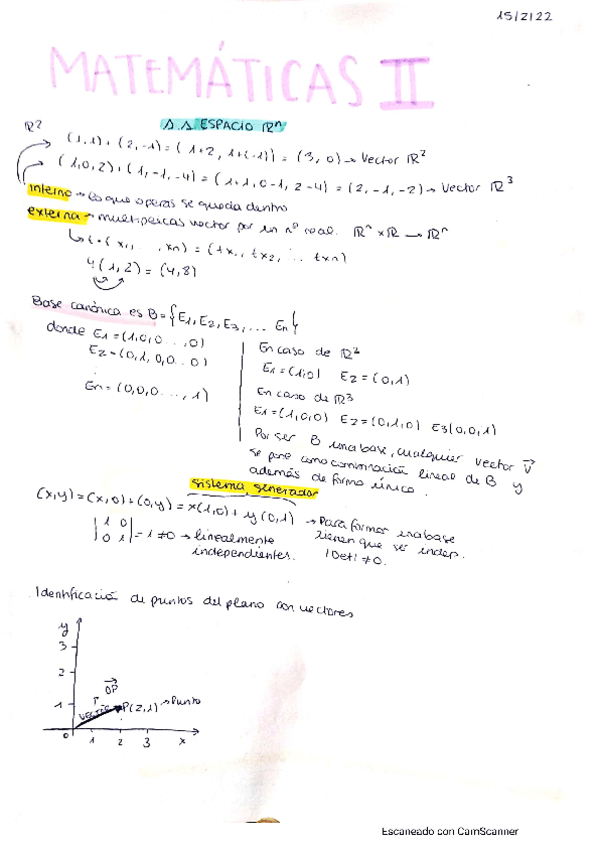 15/2/22
MATEMÁTICAS II
1.1 ESPACIO ℝⁿ
ℝ²
(1,1)+(2,-1)=(1+2, 1+(-1))=(3,0)→Vector ℝ²
(1,0,2)+(1,-1,-4)=(1+1, 0-1, 2-4)=(2,-1,-2)→Vector ℝ³
interno→lo que operas se queda dentro
externa→multiplicas vector por un nº real. ℝⁿ×ℝ→ℝⁿ
↳t·(x₁, ..., xn)=(tx₁, tx₂, ... txn)
4(1,2)=(4,8)
Base canónica es B={E1, E2, E3, ... En}
donde E1=(1,0,0...,0)
E2=(0,1,0,0..0)
En=(0,0,0...,1)
En caso de ℝ²
E1=(1,0) E2=(0,1)
En caso de ℝ3
E1=(1,0,0) E2=(0,1,0) E3(0,0,1)
Por ser B una base, cualquier vector v⃗
se pone como combinación lineal de B y
además de forma única.
sistema generador
(x,y)=(x,0)+(0,y)=x(1,0)+y(0,1)→Para formar una base
tienen que ser indep.
|Det|≠0.
|1 0|
|0 1|=1≠0→linealmente
independientes.
Identificación de puntos del plano con vectores
y
3
2
1
OP⃗
vector
P(2,1)→Punto
0 1 2 3 x
Escaneado con CamScanner